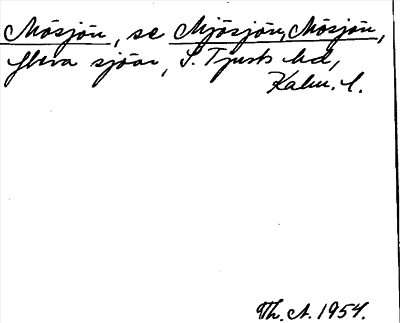 Mösjön, se Mjösjön, Mösjön,
flera sjöar, S. Tjusts hd,
Kalm. l.
Th. A. 1954.